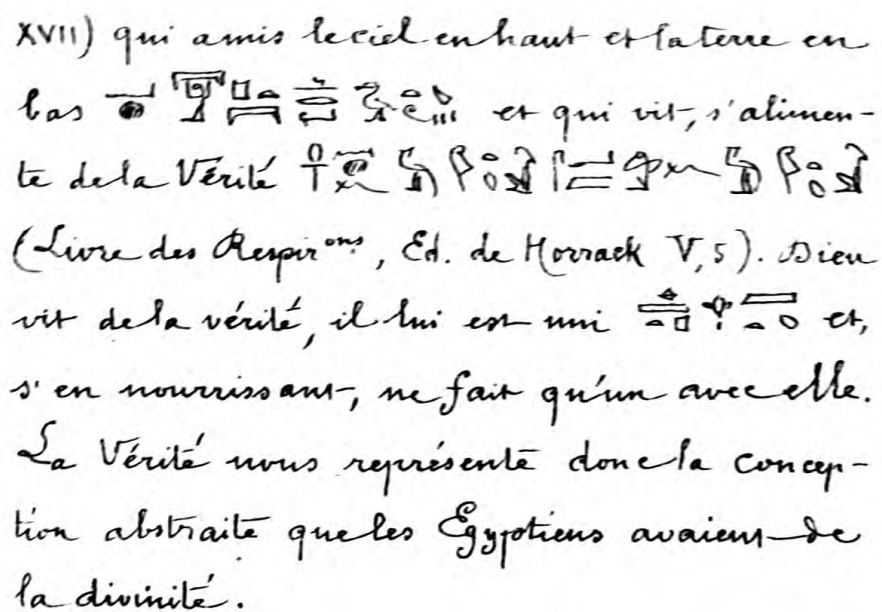 XVII) qui a mis le ciel en haut et la terre en
bas et qui vit, s'alimen-
te de la Vérité
(Livre des Respir.ons, Ed. de Horrack V, 5). Dieu
vit de la vérité, il lui est uni et,
s'en nourrissant, ne fait qu'un avec elle.
La Vérité nous représente donc la concep-
tion abstraite que les Égyptiens avaient de
la divinité.